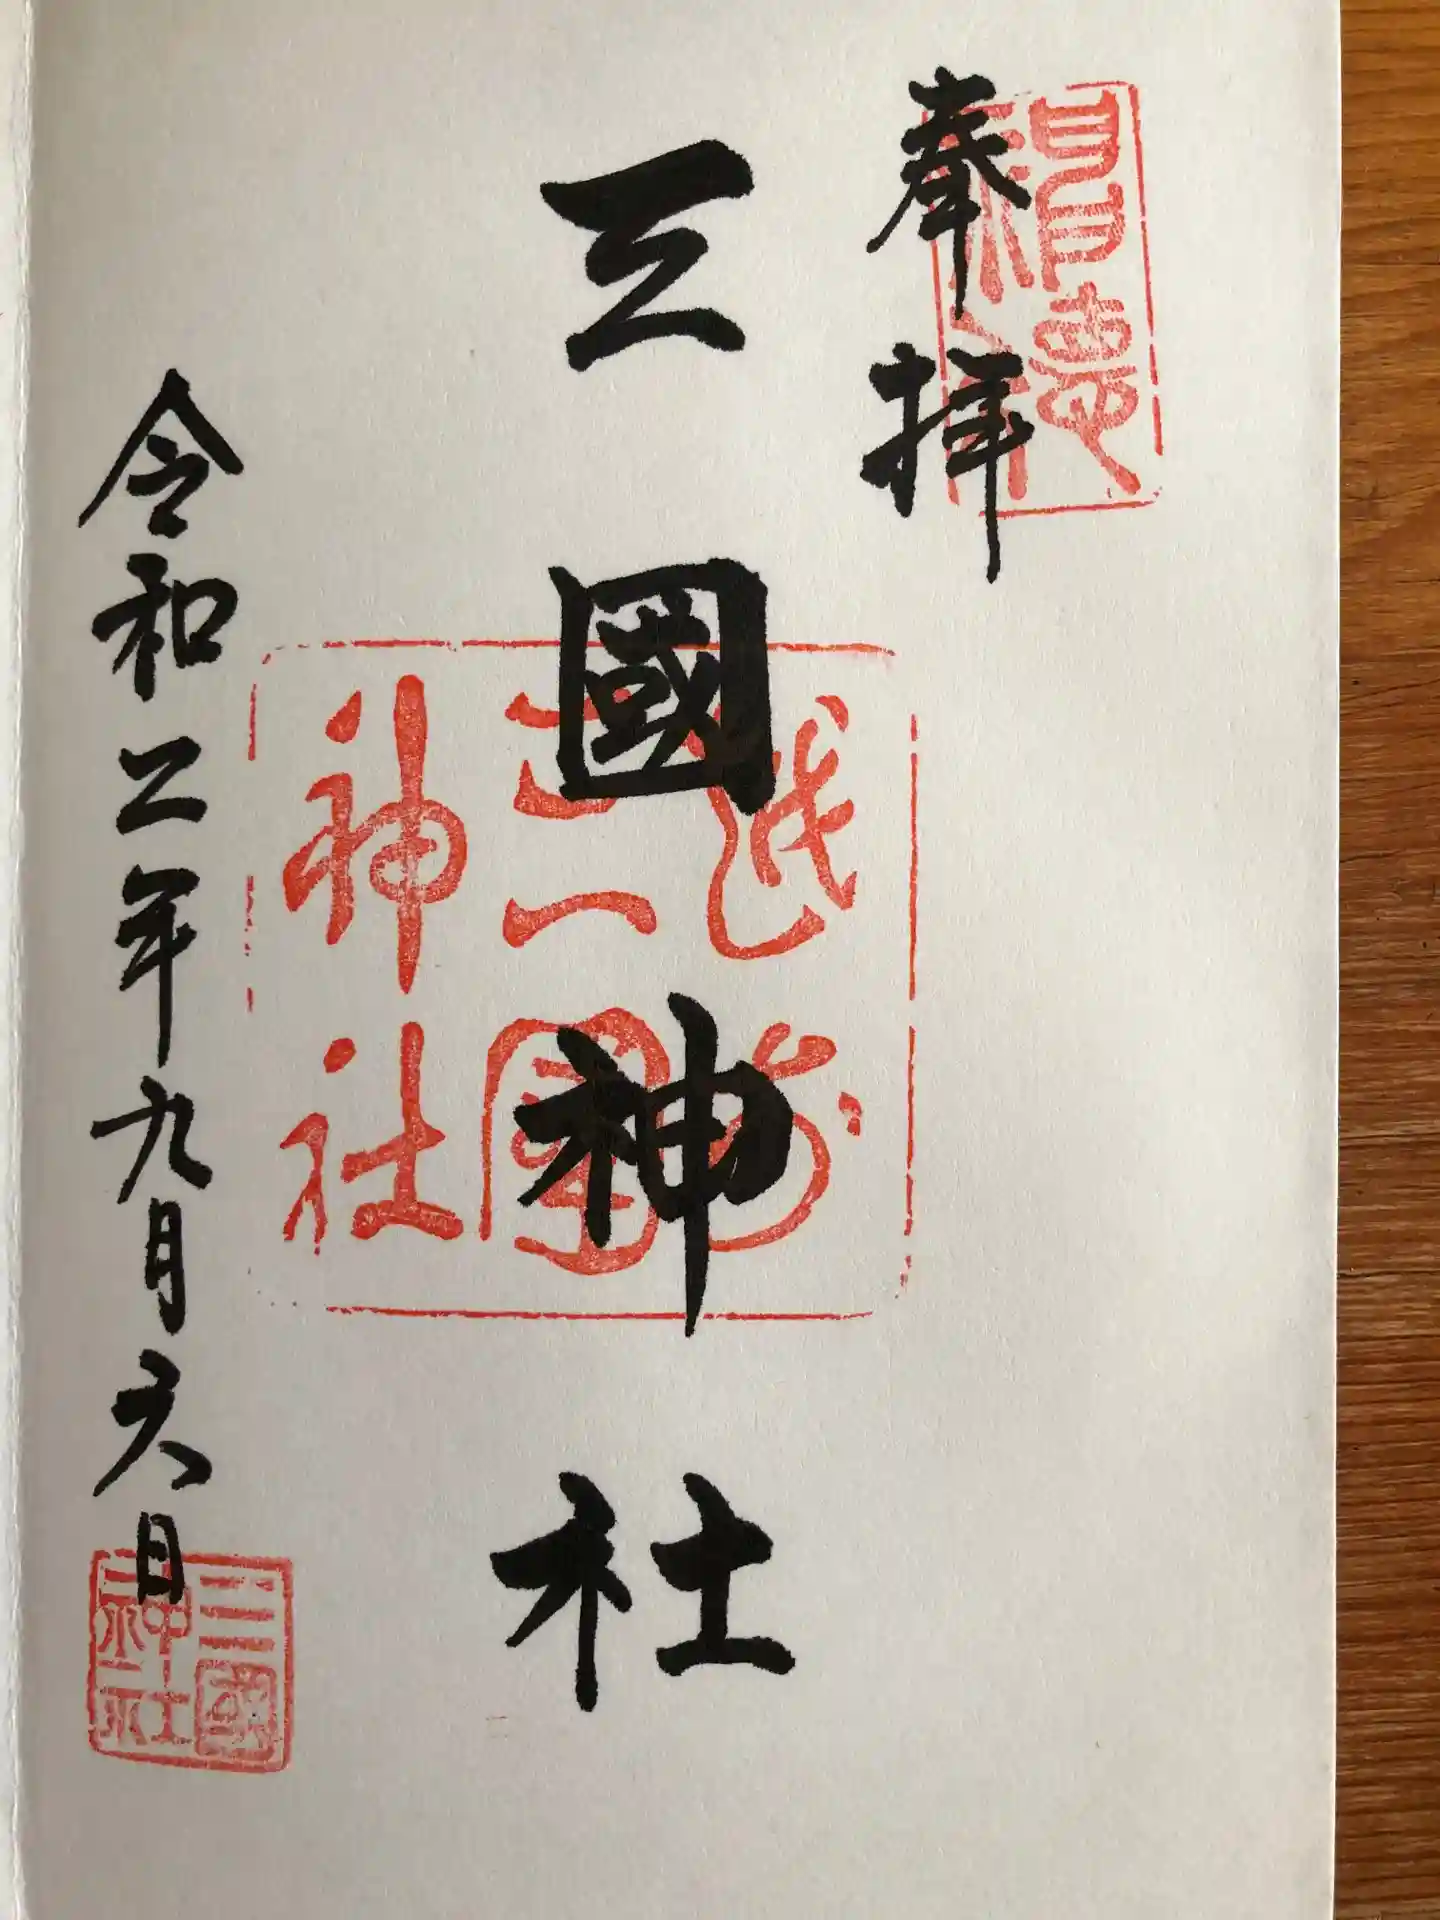 奉拝
三國神社
越前
三國
神社
令和二年九月六日
三國
神社